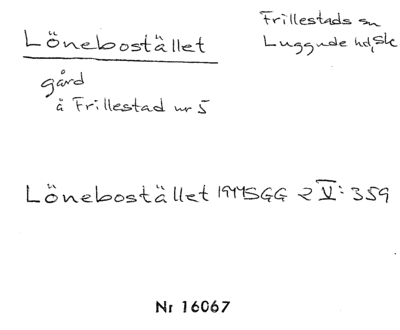 Lönebostället
Frillestads sn
Luggude hd, Sk
gård
å Frillestad nr 5
Lönebostället SGG 2 V: 359
Nr 16067